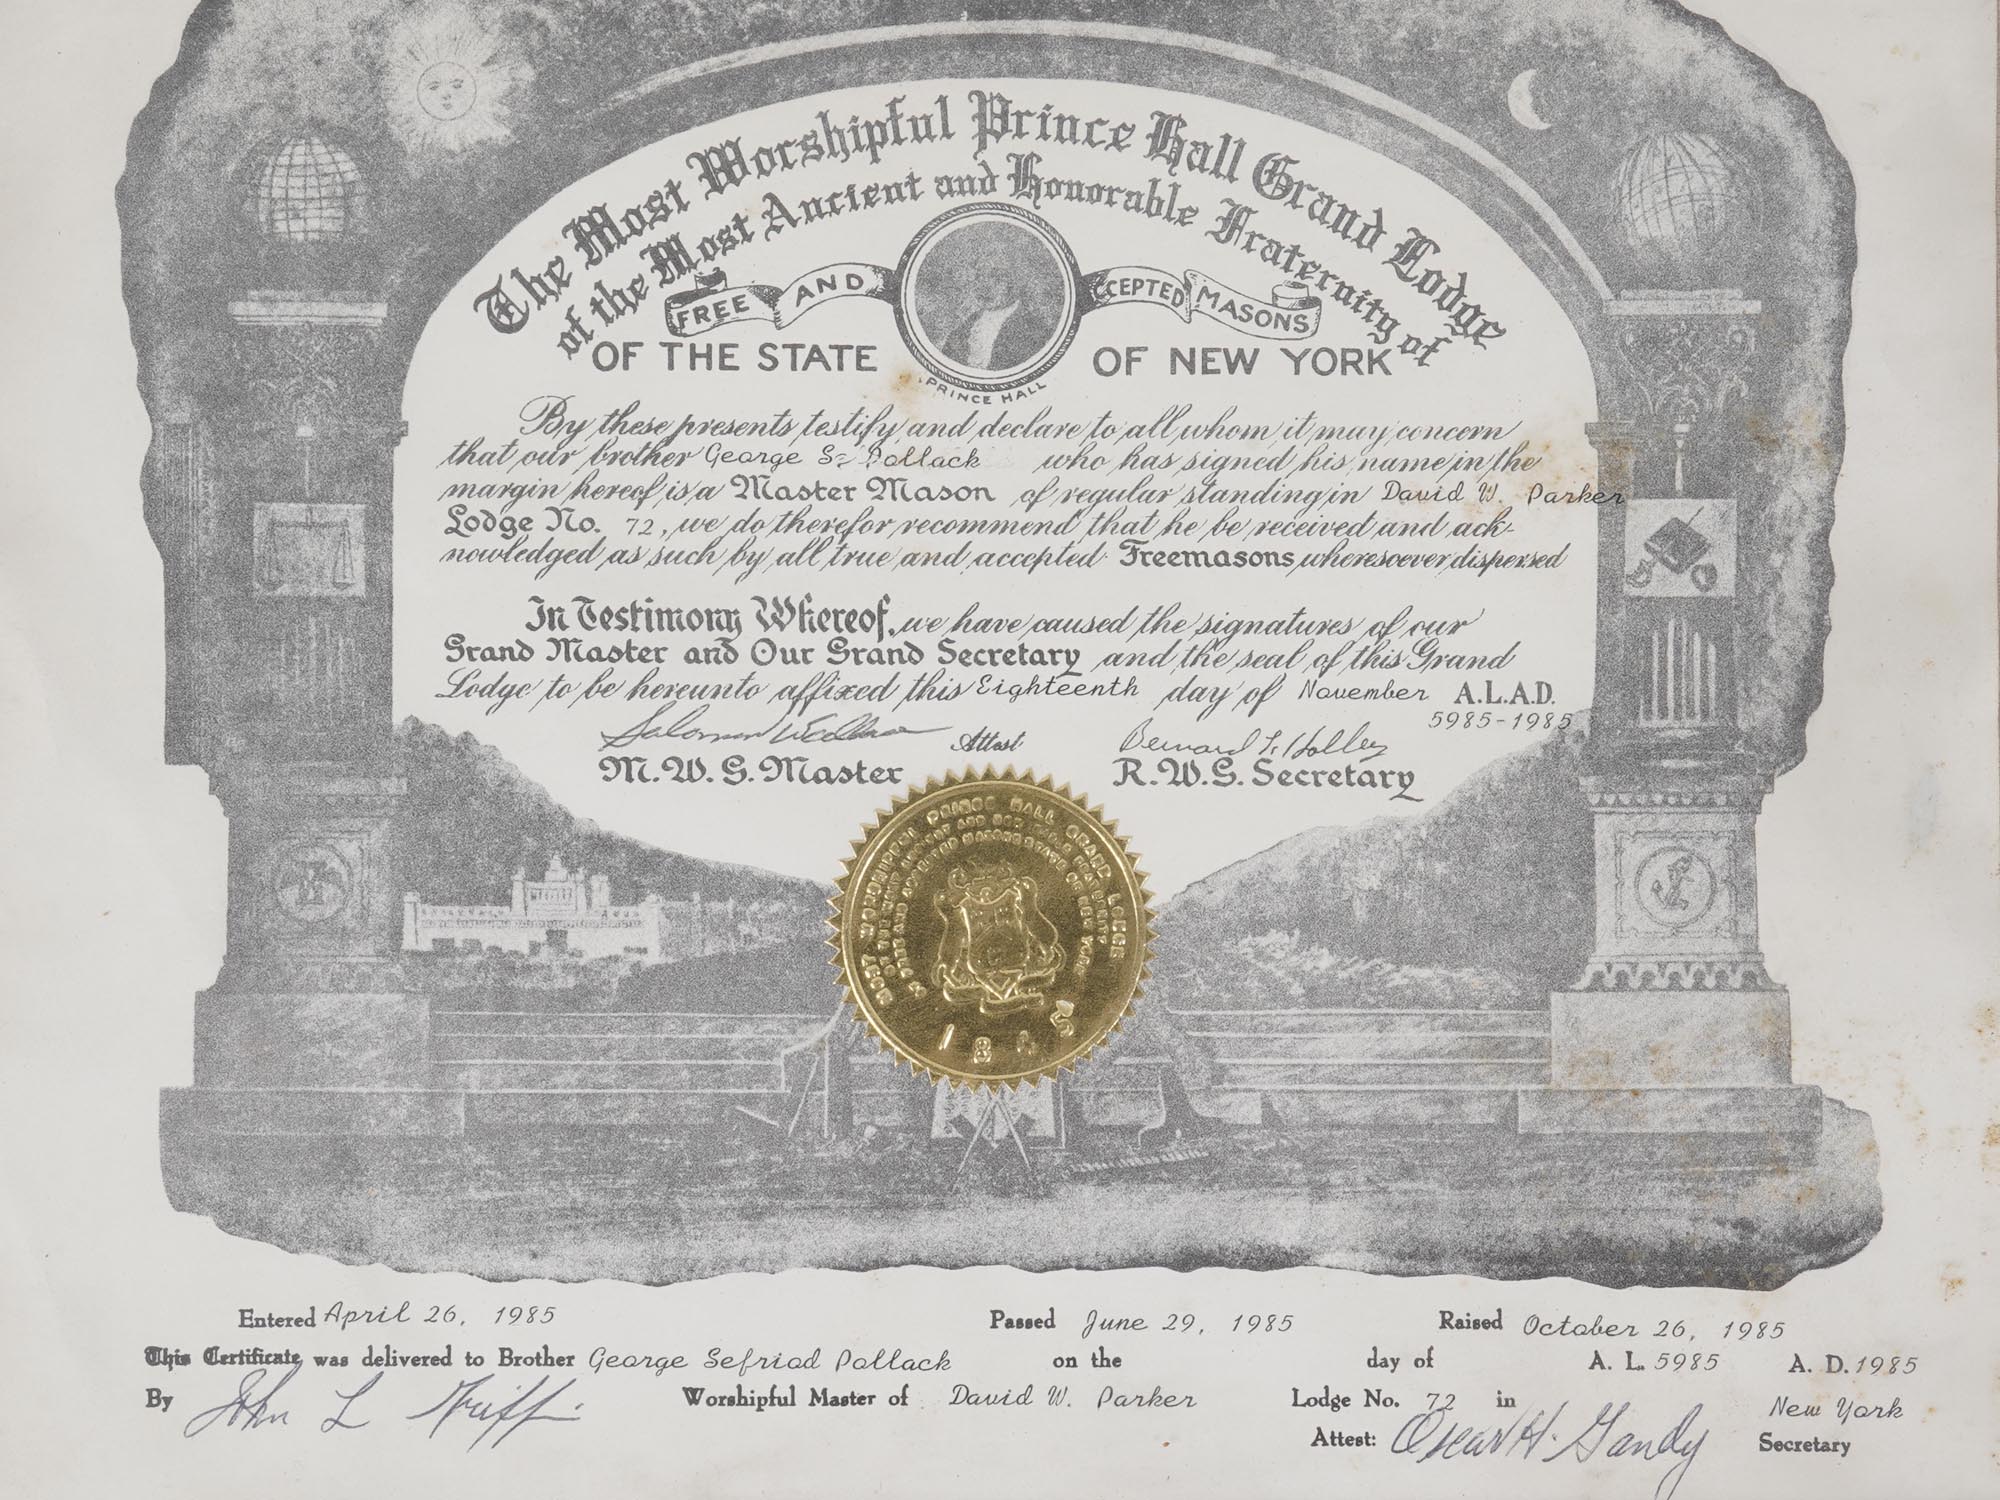 The Most Worshipful Prince Hall Grand Lodge
of the Most Ancient and Honorable Fraternity of
FREE AND CCEPTED MASONS
OF THE STATE OF NEW YORK
PRINCE HALL
By these presents testify and declare to all whom it may concern
that our brother George S. Pollack who has signed his name in the
margin hereof is a Master Mason of regular standing in David W. Parker
Lodge No. 72, we do therefor recommend that he be received and ack-
nowledged as such by all true and accepted Freemasons wheresoever dispersed
In Testimony Whereof, we have caused the signatures of our
Grand Master and Our Grand Secretary and the seal of this Grand
Lodge to be hereunto affixed this Eighteenth day of November A.L.A.D.
5985-1985
Solomon Wallace Attest Bernard F. Holley
M.W.G. Master R.W.G. Secretary
MOST WORSHIPFUL PRINCE HALL GRAND LODGE
OF THE MOST ANCIENT AND HONORABLE FRATERNITY
OF FREE AND ACCEPTED MASONS STATE OF NEW YORK
1845
Entered April 26, 1985 Passed June 29, 1985 Raised October 26, 1985
This Certificate was delivered to Brother George Sefriod Pollack on the day of A. L. 5985 A. D. 1985
By John L Griffin Worshipful Master of David W. Parker Lodge No. 72 in New York
Attest: Oscar H. Gandy Secretary